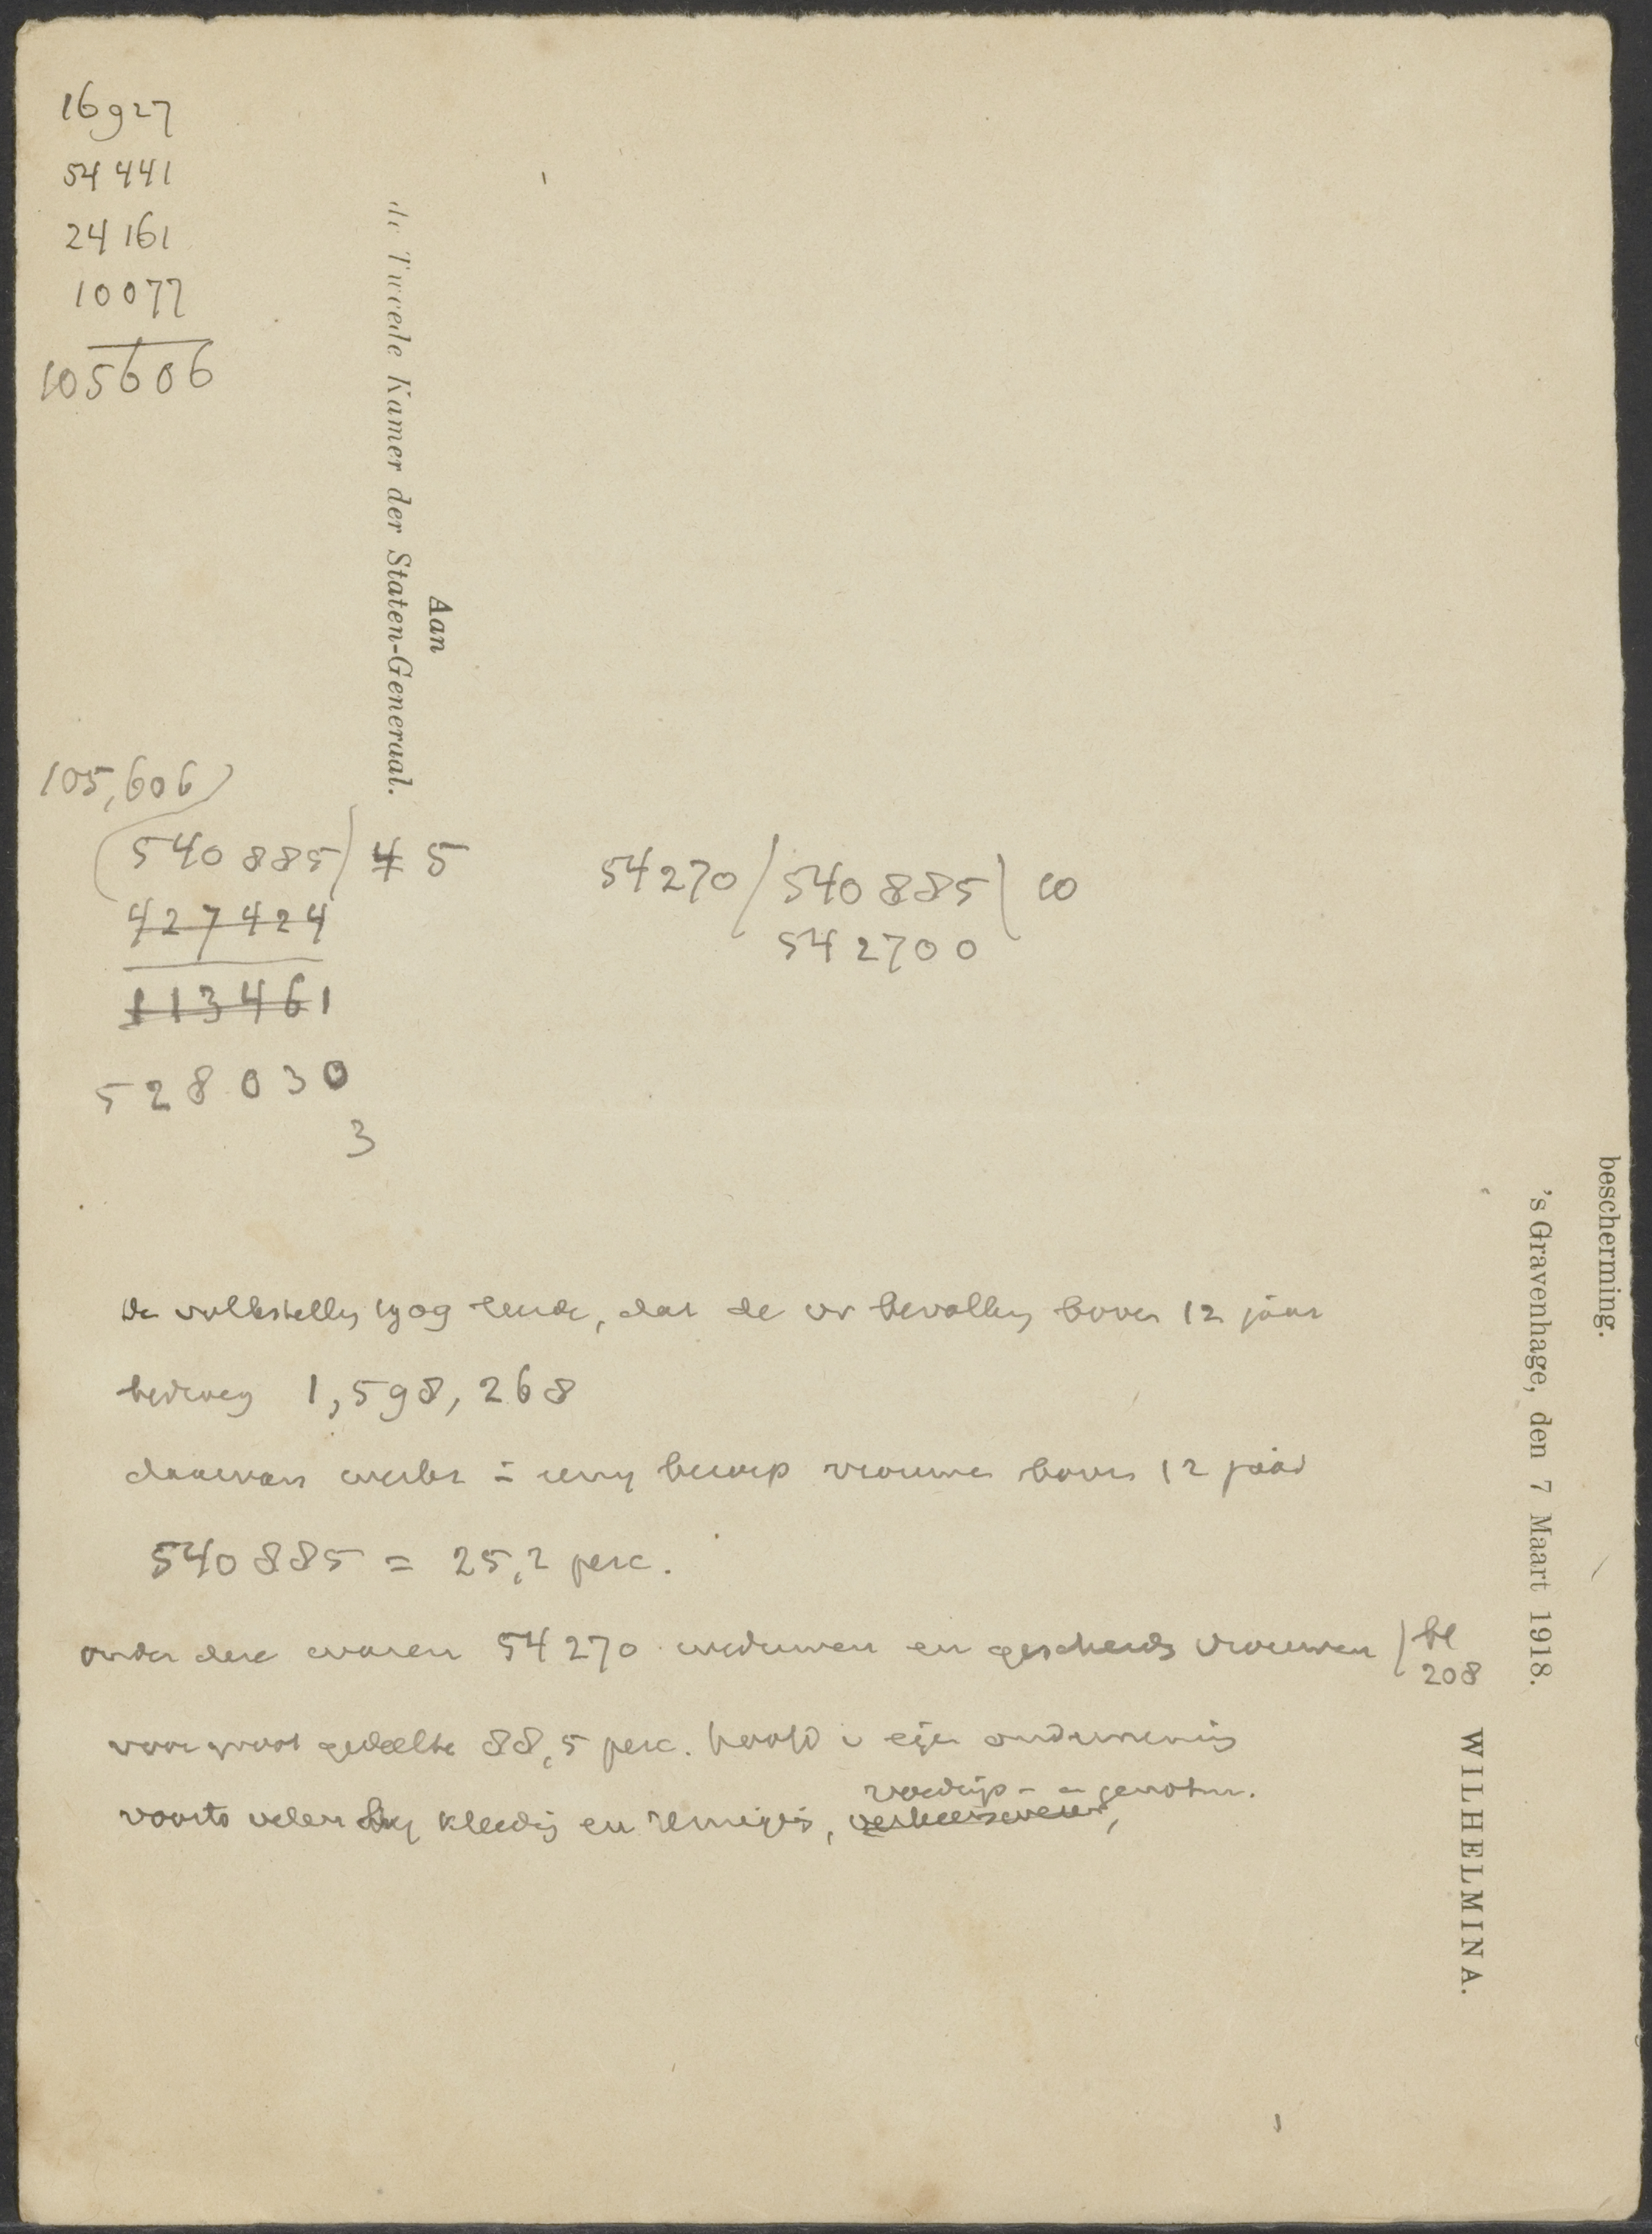 16927
54441
24161
10077
105606
Aan
de Tweede Kamer der Staten-Generaal.
105,606
540885 4 5
427424
113461
528030
3
54270 / 540885 | 10
542700
De volkstelling 1909 leerde, dat de vr bevolking boven 12 jaar
bedroeg 1,598,268
daarvan beroep vrouwen boven 12 jaar
540885 = 25,2 perc.
onder deze waren 54270 weduwen en gescheiden vrouwen | bl
208
voor groot gedeelte 88,5 perc. hoofd v eigen onderneming
voedings- en genotm.
voorts velen kleeding en reiniging,
bescherming.
's Gravenhage, den 7 Maart 1918.
WILHELMINA.